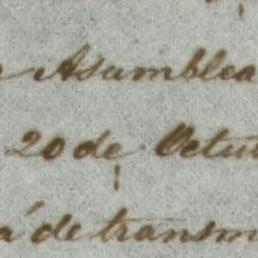 Asamblea
20 de Octu
de transm